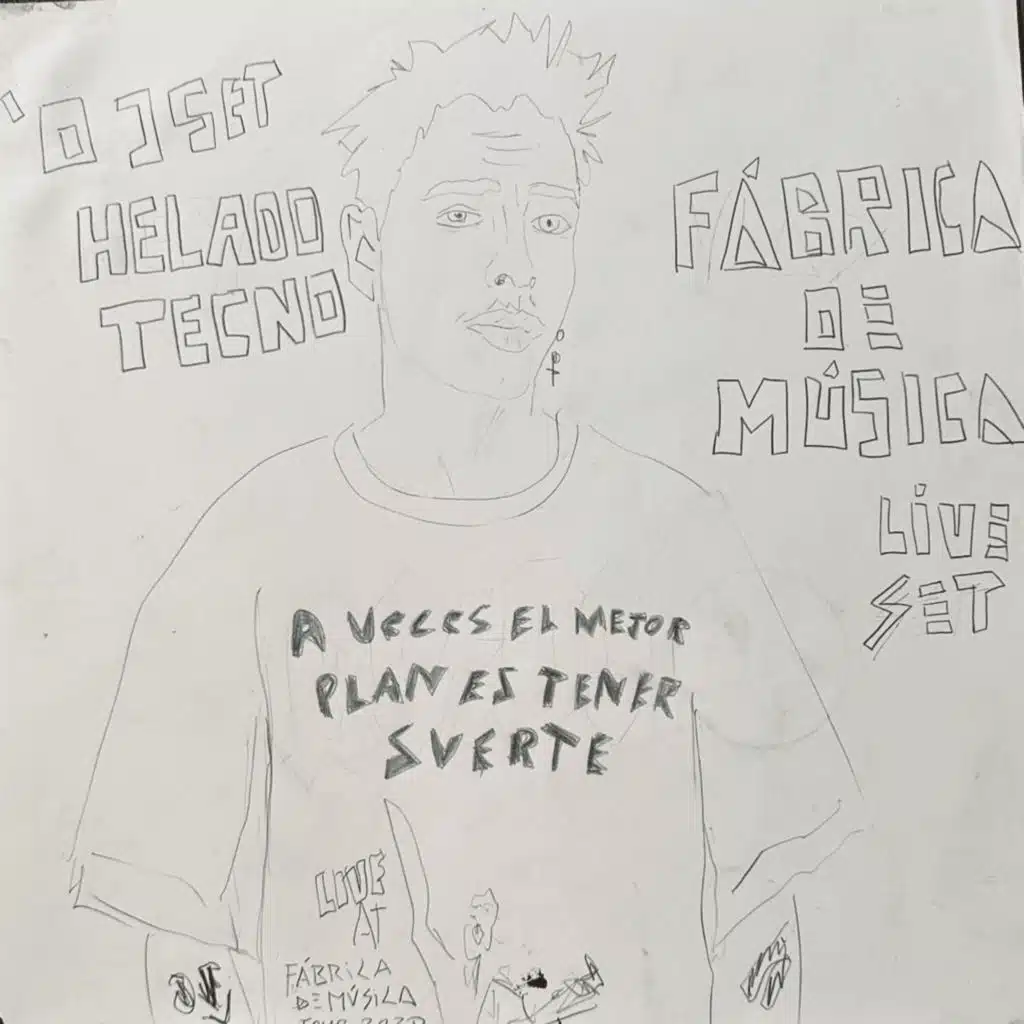 DJ SET
HELADO
TECNO
FÁBRICA
DE
MÚSICA
LIVE
SET
A VECES EL MEJOR
PLAN ES TENER
SUERTE
LIVE
AT
FÁBRICA
DE MÚSICA
TOUR